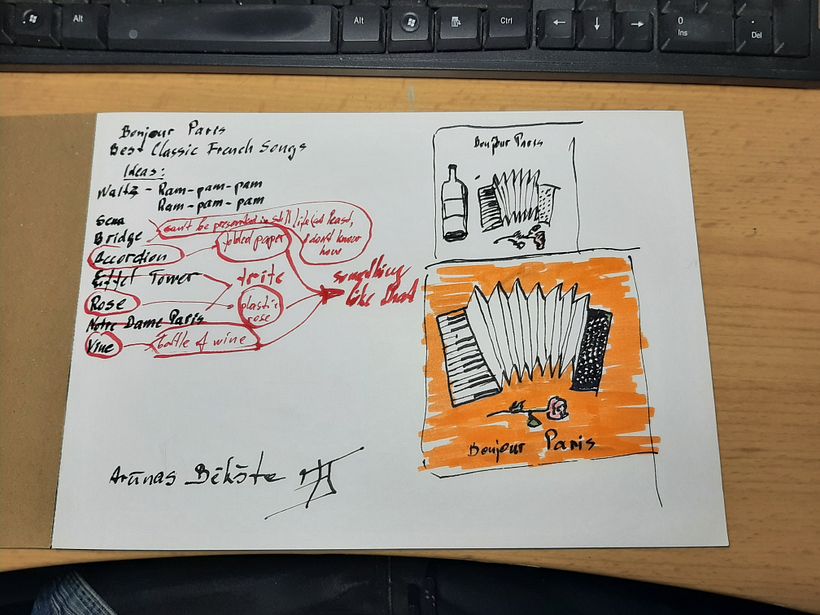 Alt
Alt
Ctrl
0
Ins
.
Del
Bonjour Paris
Best Classic French Songs
Ideas:
Waltz - Ram-pam-pam
Ram-pam-pam
Sena
Bridge
can't be presented in still life (at least,
I don't know
how
Accordion
folded paper
Eiffel Tower
trite
something
like that
Rose
plastic
rose
Notre Dame Paris
Vine
bottle of wine
Arūnas Bėkšte
Bonjour Paris
Bonjour Paris